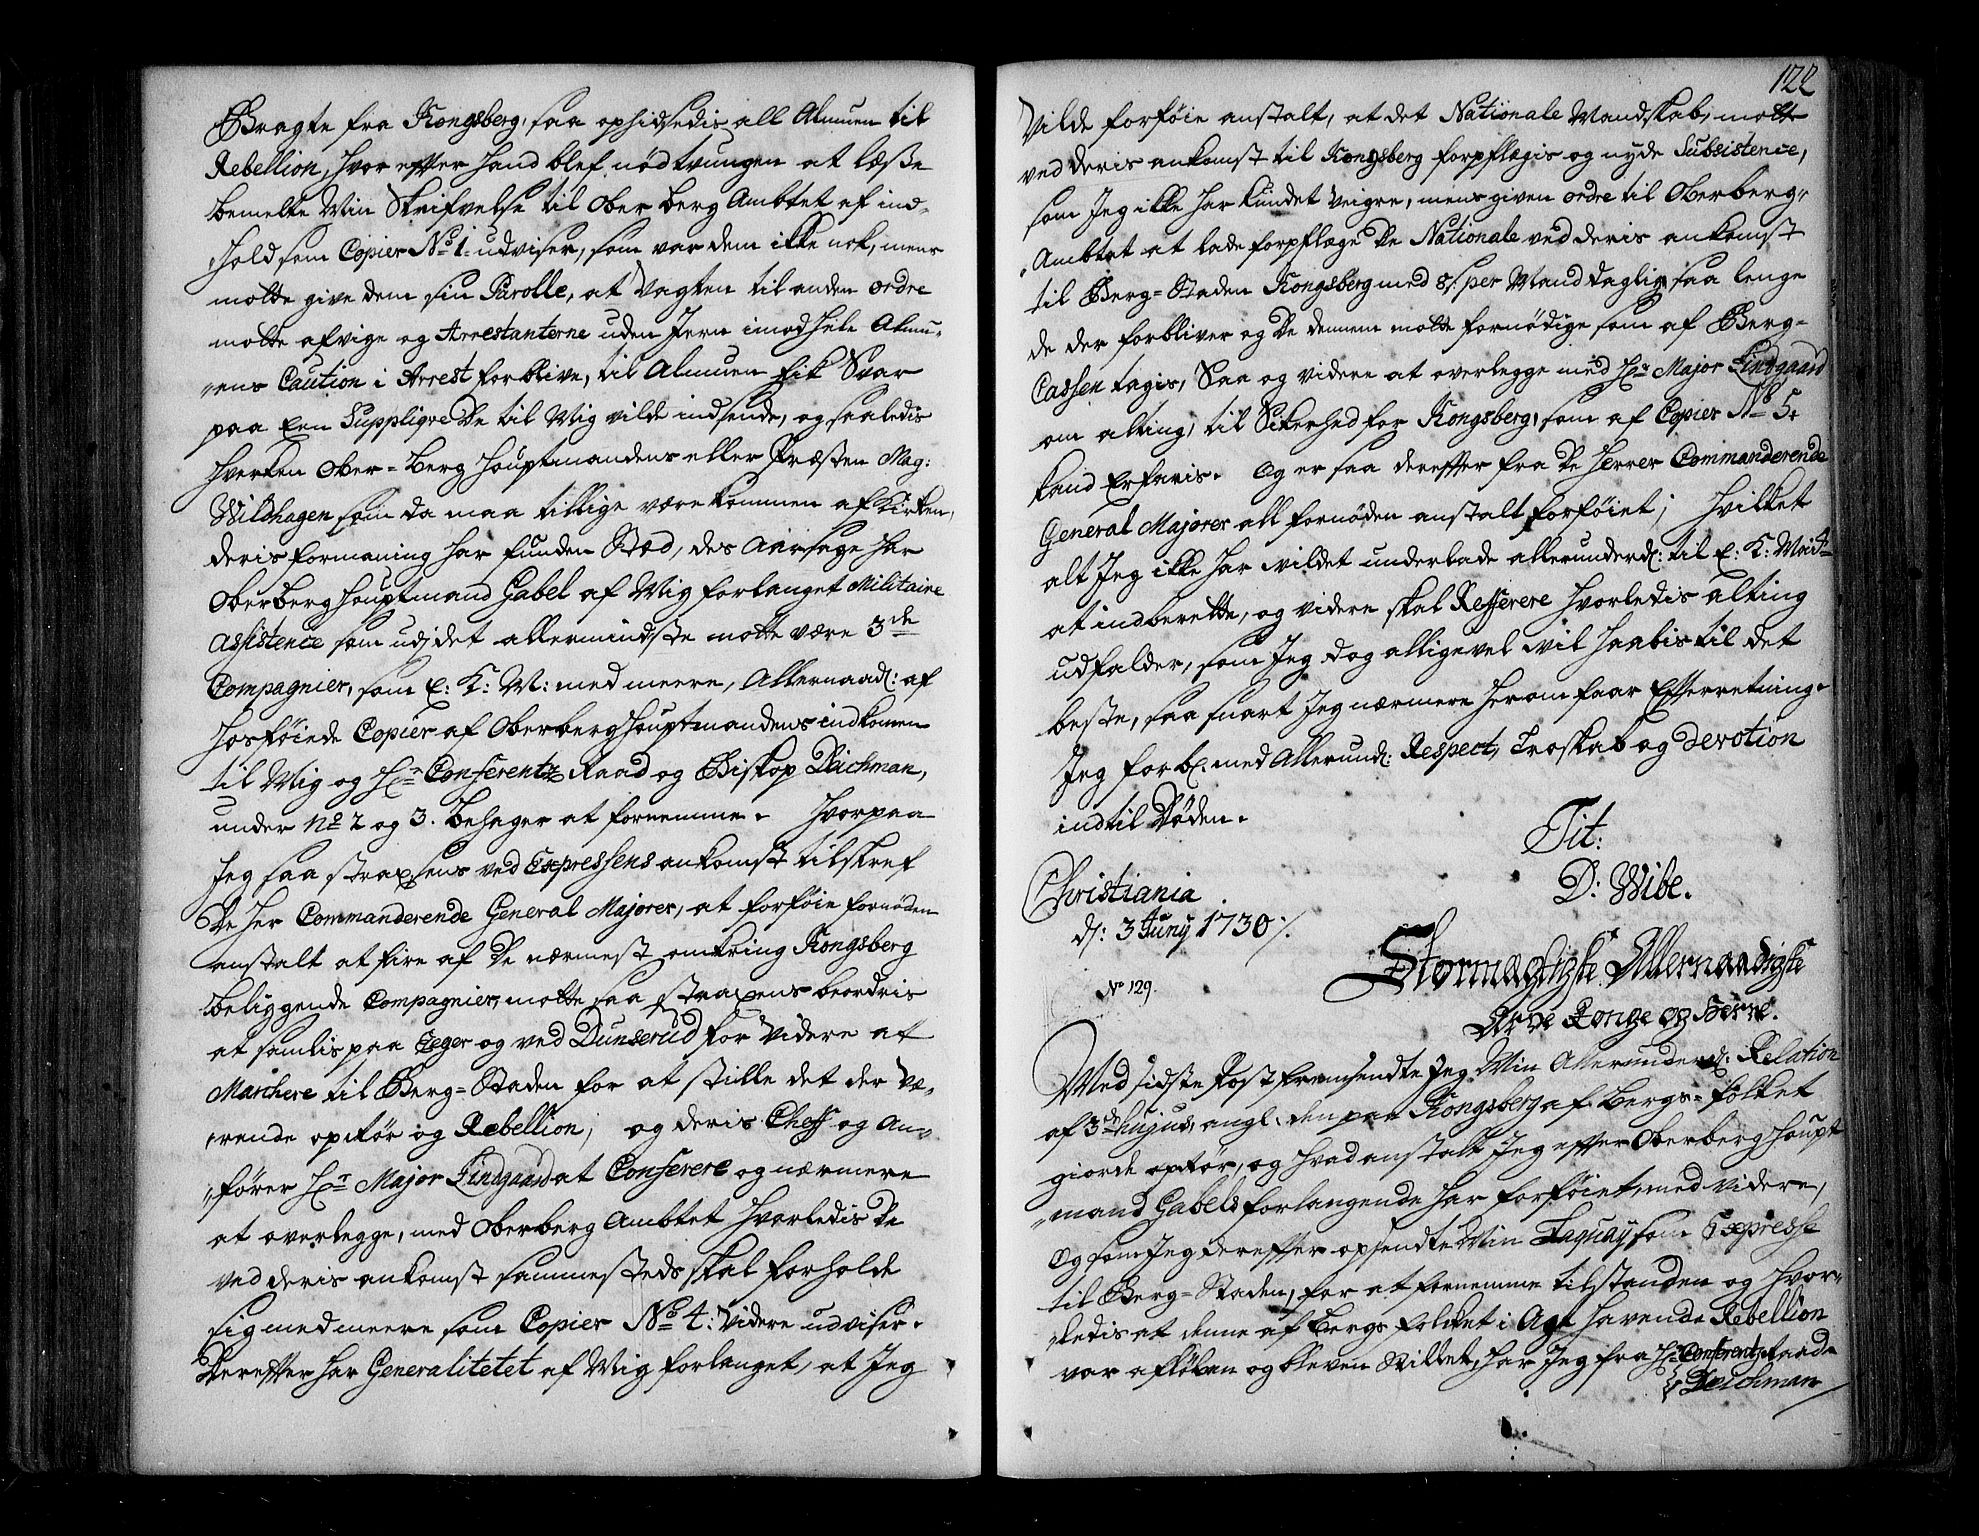 Bragte fra Kongsberg, saa ophidsedis all Almuen til
Rebellion, hvor effter hand blef nødtvungen at læsse
bemelte Min Skrifvelse til Ober berg Ambtet af ind-
hold som Copier No 1. udviser, som var dem ikke nok, mens
motte give dem sin Parolle, at Vagten til anden ordre
motte afvige og Arrestanterne uden Jern imod hele Almu-
ens Caution i Arrest forblive, til Almuen fik Svar
paa Een Suppliqve De til Mig vilde indsende, og saaledis
hverken Ober-Berg Houptmandens eller Præsten Mag:
Wildhagen som da maa tillige være kommen af Kirken,
deris formaning har funden Stæd, des Aarsage har
Oberberghouptmand Gabel af Mig forlanget Militaire
Assistence som udj det allermindste motte være 3de
Compagnier, som E: K: M: med meere, Allernaad: af
hosføiede Copier af Oberberghouptmandens indkomen
til Mig og Hr Conferentz Raad og Biskop Deichman,
under No 2 og 3. behager at fornemme. Hvorpaa
Jeg saa straxsens ved Expressens ankomst tilskref
De Her Commanderende General Majorer, at forføie fornøden
anstalt at fire af De nærmest omkring Kongsberg
beliggende Compagnier, motte saa straxens beordris
at samlis paa Eger og ved Dunserud for Videre at
Marchere til Berg-Staden for at stille det der Væ-
rende opRør og Rebellion; og deris Cheff og An-
fører Hr Major Lindgaard at Conferere og nærmere
at overlegge, med Oberberg Ambtet hvorledis De
ved deris ankomst sammesteds skal forholde
sig med meere som Copier No 4: Videre udviser.
Dereffter har Generalitetet af Mig forlanget, at Jeg
122
Vilde forføie anstalt, at det Nationale Mandskab, motte
ved deris ankomst til Kongsberg forpflægis og nyde Subsistence,
som Jeg ikke har kundet Veigre, mens given ordre til Oberberg-
Ambtet at lade forpflæge De Nationale ved deris ankomst
til Berg-Staden Kongsberg med 8 s: per Mand daglig saa lenge
de der forbliver og De dennem motte fornødige som af Berg-
Cassen tagis, Saa og videre at overlegge med Hr Major Lindgaard
om alting, til Sikerhed for Kongsberg, som af Copier No 5.
kand Erfaris. Og er saa dereffter fra De Herrer Commanderende
General Majorer all fornøden anstalt forføiet; hvilket
alt Jeg ikke har vildet underlade allerunderd: til E: K: Maitt
at indberette, og videre skal Refferere hvorledis alting
udfalder, som Jeg dog alligevel vil haabis til det
beste, saa snart Jeg nærmere herom faar Efterretning.
Jeg forbl. med Allerund: Respect, Troskab og Devotion
indtil Døden.
Tit:
D: Wibe.
Christiania
d: 3 Juny 1730 ./.
No 129.
Stormægtigste Allernaadigste
Arve Konge og Herre.
Med sidste Post fremsendte Jeg Min Allerunderd: Relation
af 3de hujus, angl: den paa Kongsberg af Bergs-folket
giorde opRør, og hvad anstalt Jeg effter Oberberg Houpt-
mand Gabels forlangende har forføiet, med videre,
Og som Jeg dereffter opsendte Min Laquay som Expresse
til Berg-Staden, for at fornemme tilstanden og hvor-
ledis at denne af Bergs folket i Agt havende Rebellion
var afløben og bleven Stillet, har Jeg fra Hr Conferentz Raad
Deichman